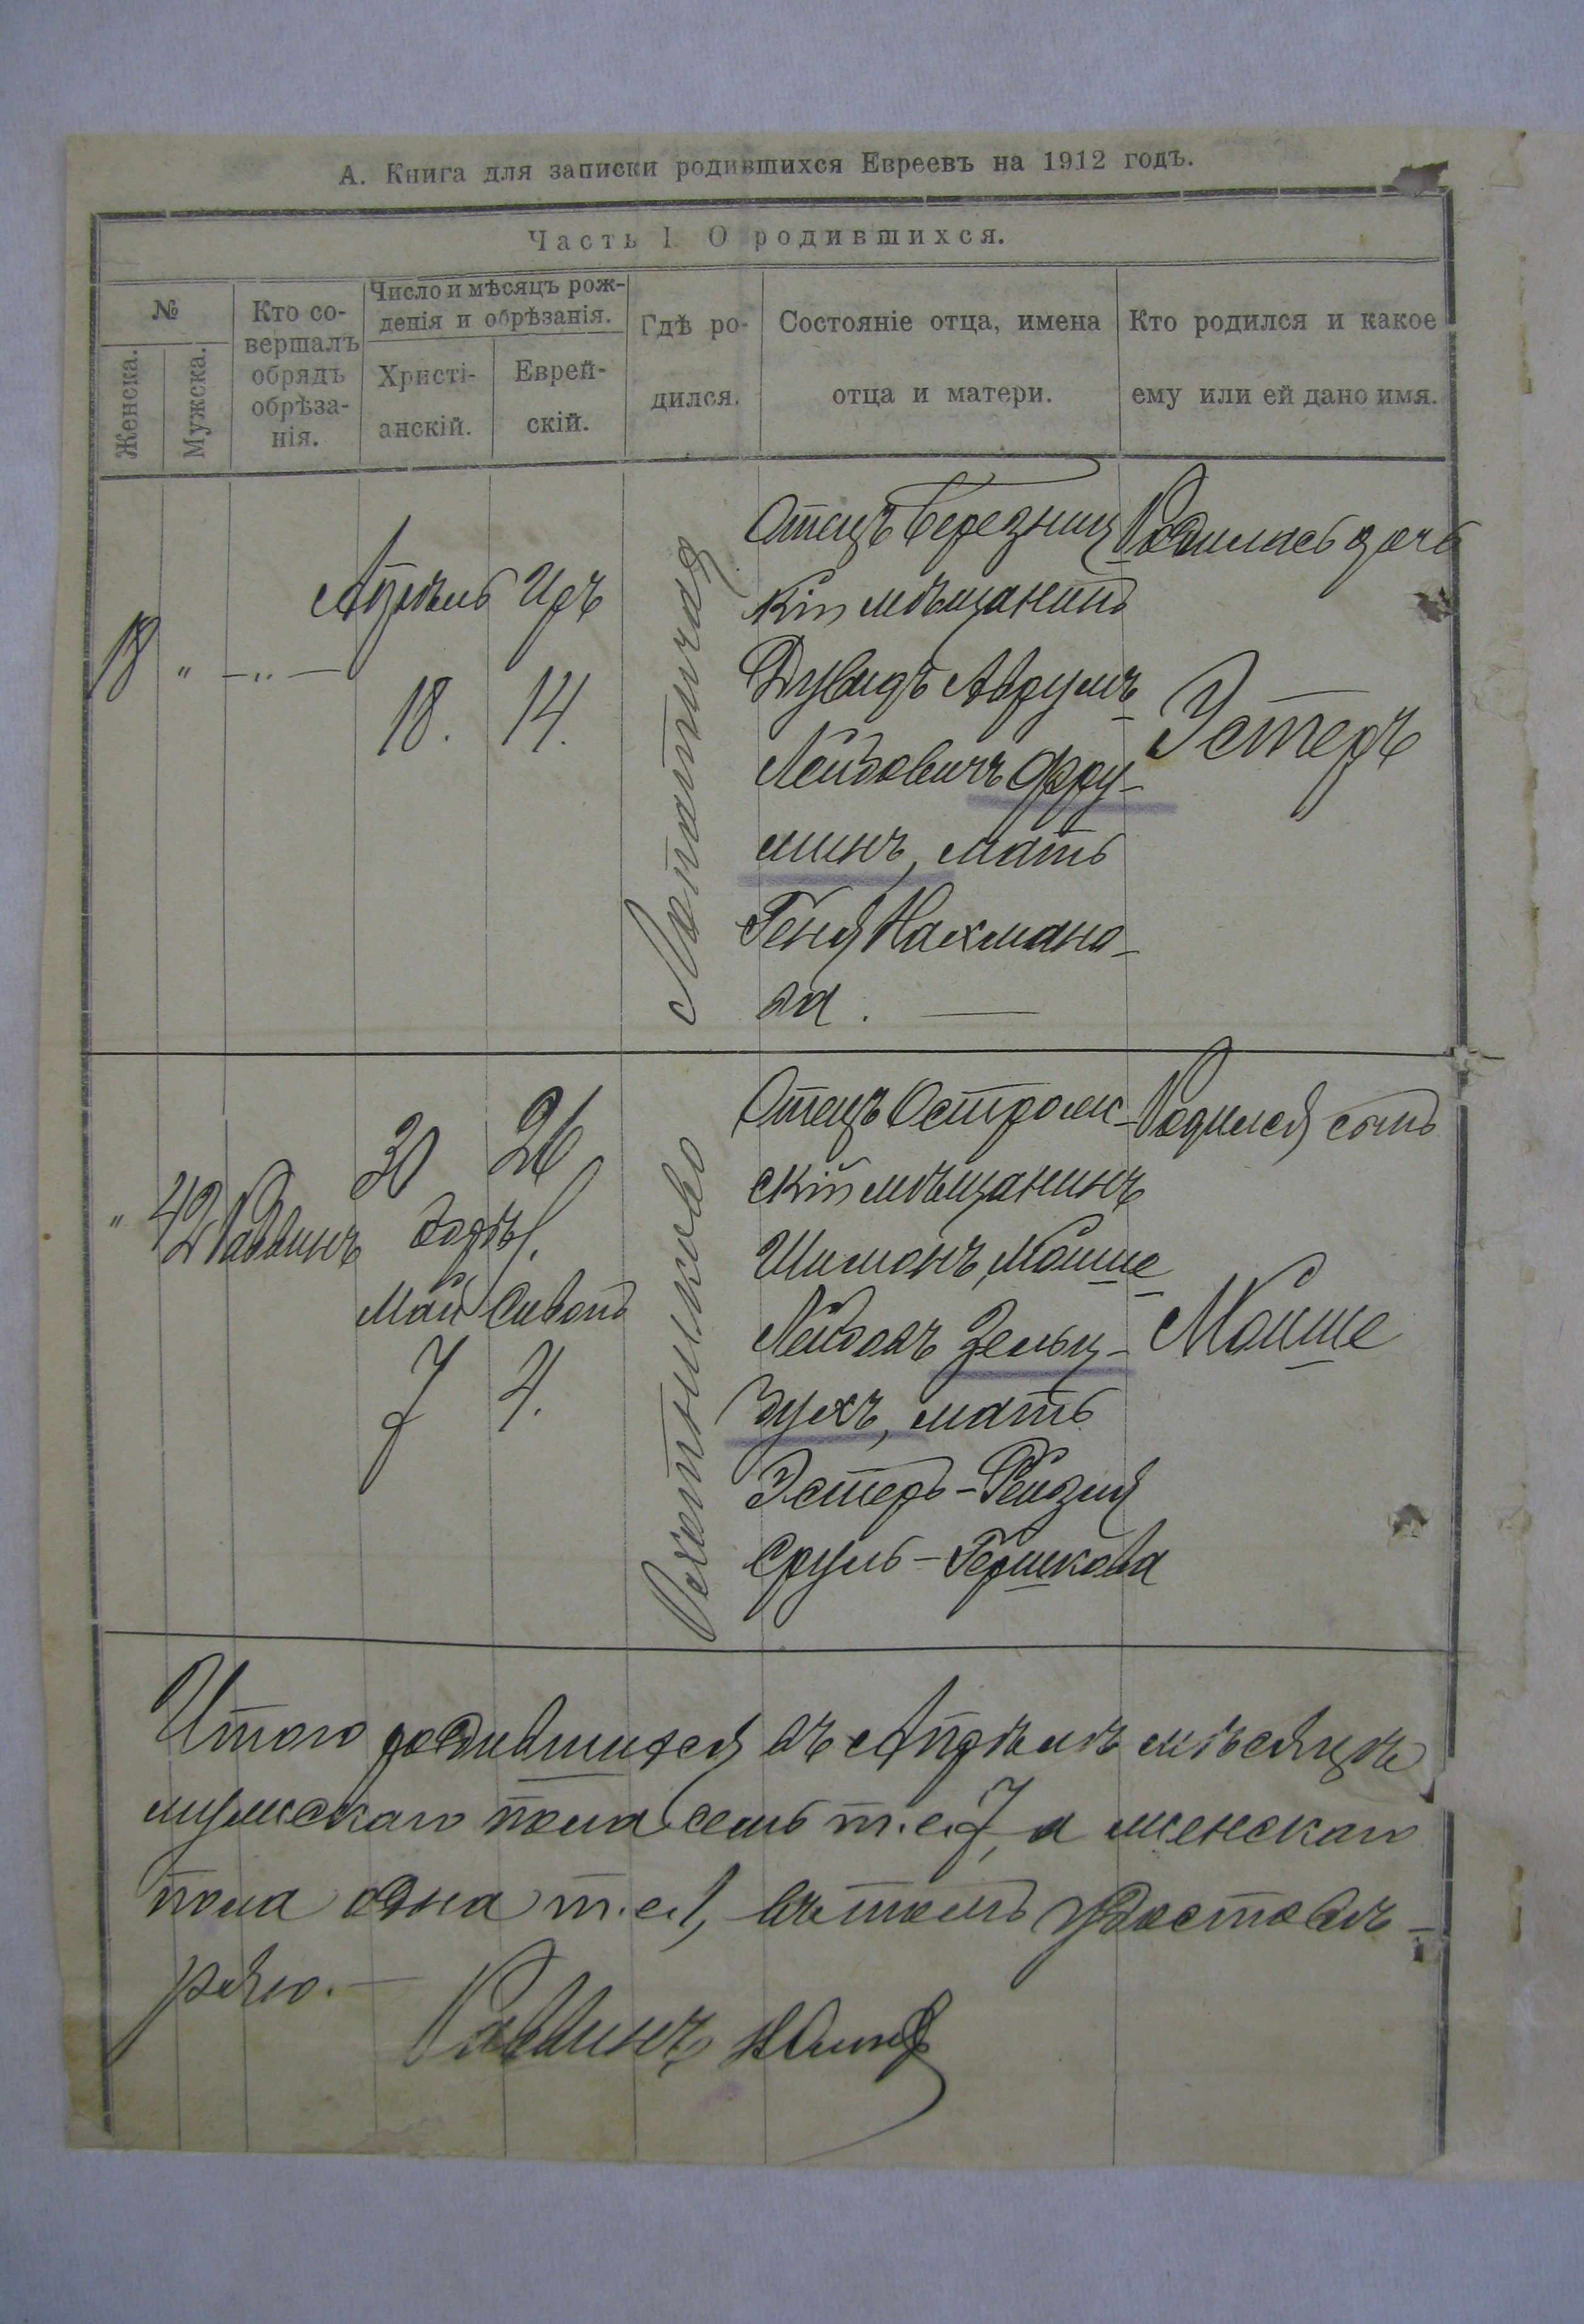 А. Книга для записки родившихся Евреевъ на 1912 годъ.
Часть 1 О родившихся.
№
Женска.
Мужска.
Кто со-
вершалъ
обрядъ
обрѣза-
нія.
Число и мѣсяцъ рож-
денія и обрѣзанія.
Христі-
анскій.
Еврей-
скій.
Гдѣ ро-
дился.
Состояніе отца, имена
отца и матери.
Кто родился и какое
ему или ей дано имя.
18 " — " —
Апрѣль
18.
Иръ
14.
Отецъ Березниц
кій мѣщанинъ
Дувидъ Аврумъ-
Лейбовичъ Фру-
минъ, мать
Геня Нахмано-
ва. —
Родилась дочь
Эстеръ
" 42
Раввинъ
30
Май
7
26
Сивонъ
4.
Отецъ Остро
скій мѣщанинъ
Шимонъ, Мошше
Лейбовъ Зельц-
духъ, мать
Эстеръ-Рейзля
Сруль-Гершкова
Родился сынъ
Мошше
Итого родившихся въ Апрѣлѣ мѣсяцѣ
мужскаго пола семь т.е. 7, а женскаго
пола одна т.е. 1, въ томъ удостовѣ-
ряю. —
Раввинъ